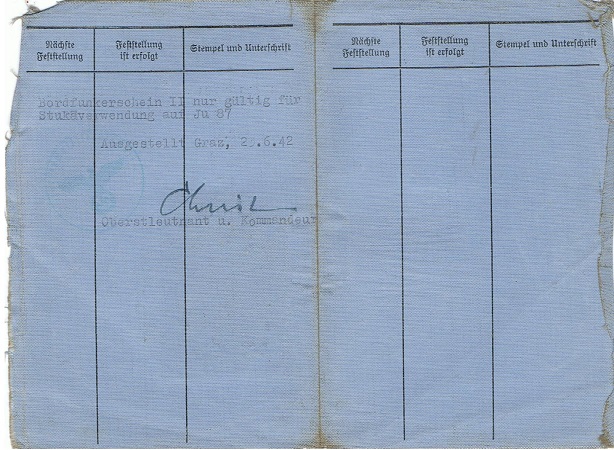 Nächste Feststellung
Feststellung ist erfolgt
Stempel und Unterschrift
Nächste Feststellung
Feststellung ist erfolgt
Stempel und Unterschrift
Bordfunkerschein II nur gültig für
Stukaverwendung auf Ju 87
Ausgestellt Graz, .6.42
Oberstleutnant u. Kommandeur